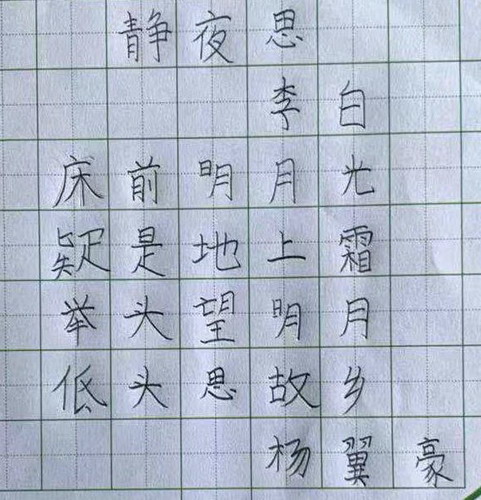 静夜思
李白
床前明月光
疑是地上霜
举头望明月
低头思故乡
杨翼豪